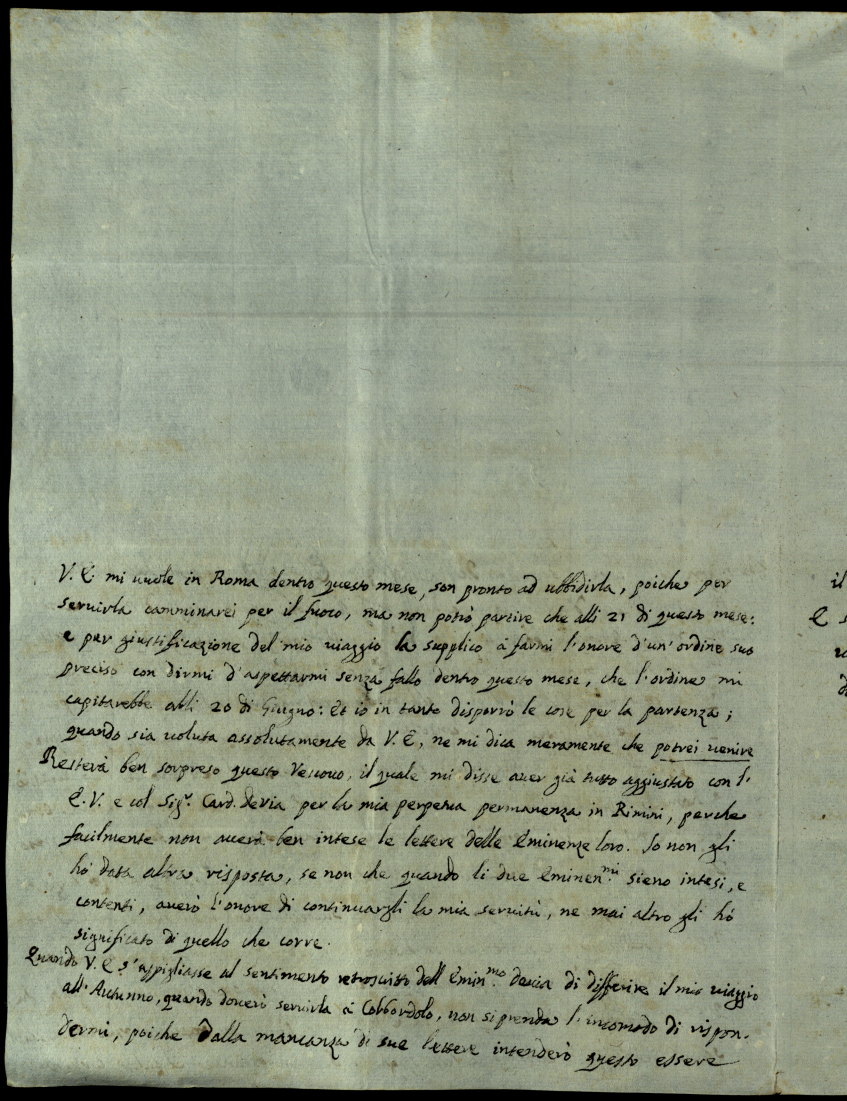 V. E. mi uuole in Roma dentro questo mese, son pronto ad ubbidirla, poiche per
seruirla camminarei per il fuoco, ma non potrò partire che alli 21 di questo mese:
e per giustificazione del mio uiaggio la supplico à farmi l'onore d'un'ordine suo
preciso con dirmi d'aspettarmi senza fallo dentro questo mese, che l'ordine mi
capitarebbe alli 20 di Giugno: Et io in tanto disporrò le cose per la partenza;
quando sia uoluta assolutamente da V. E, ne mi dica meramente che potrei uenire
Resterà ben sorpreso questo Vescouo, il quale mi disse auer già tutto aggiustato con l'
E. V. e col Sigr. Card. Davia per la mia perpetua permanenza in Rimini, perche
facilmente non auerà ben intese le lettere delle Eminenze loro. Io non gli
hò data altra risposta, se non che quando li due Eminen.mi sieno intesi, e
contenti, auerò l'onore di continuargli la mia seruitù, ne mai altro gli hò
significato di quello che corre.
Quando V. E s'appigliasse al sentimento retroscritto dell Emin.mo Davia di differire il mio uiaggio
all'Autunno, quando douerò seruirla à Colbordolo, non si prenda l'incomodo di rispon-
dermi, poiche dalla mancanza di sue lettere intenderò questo essere
il
e s